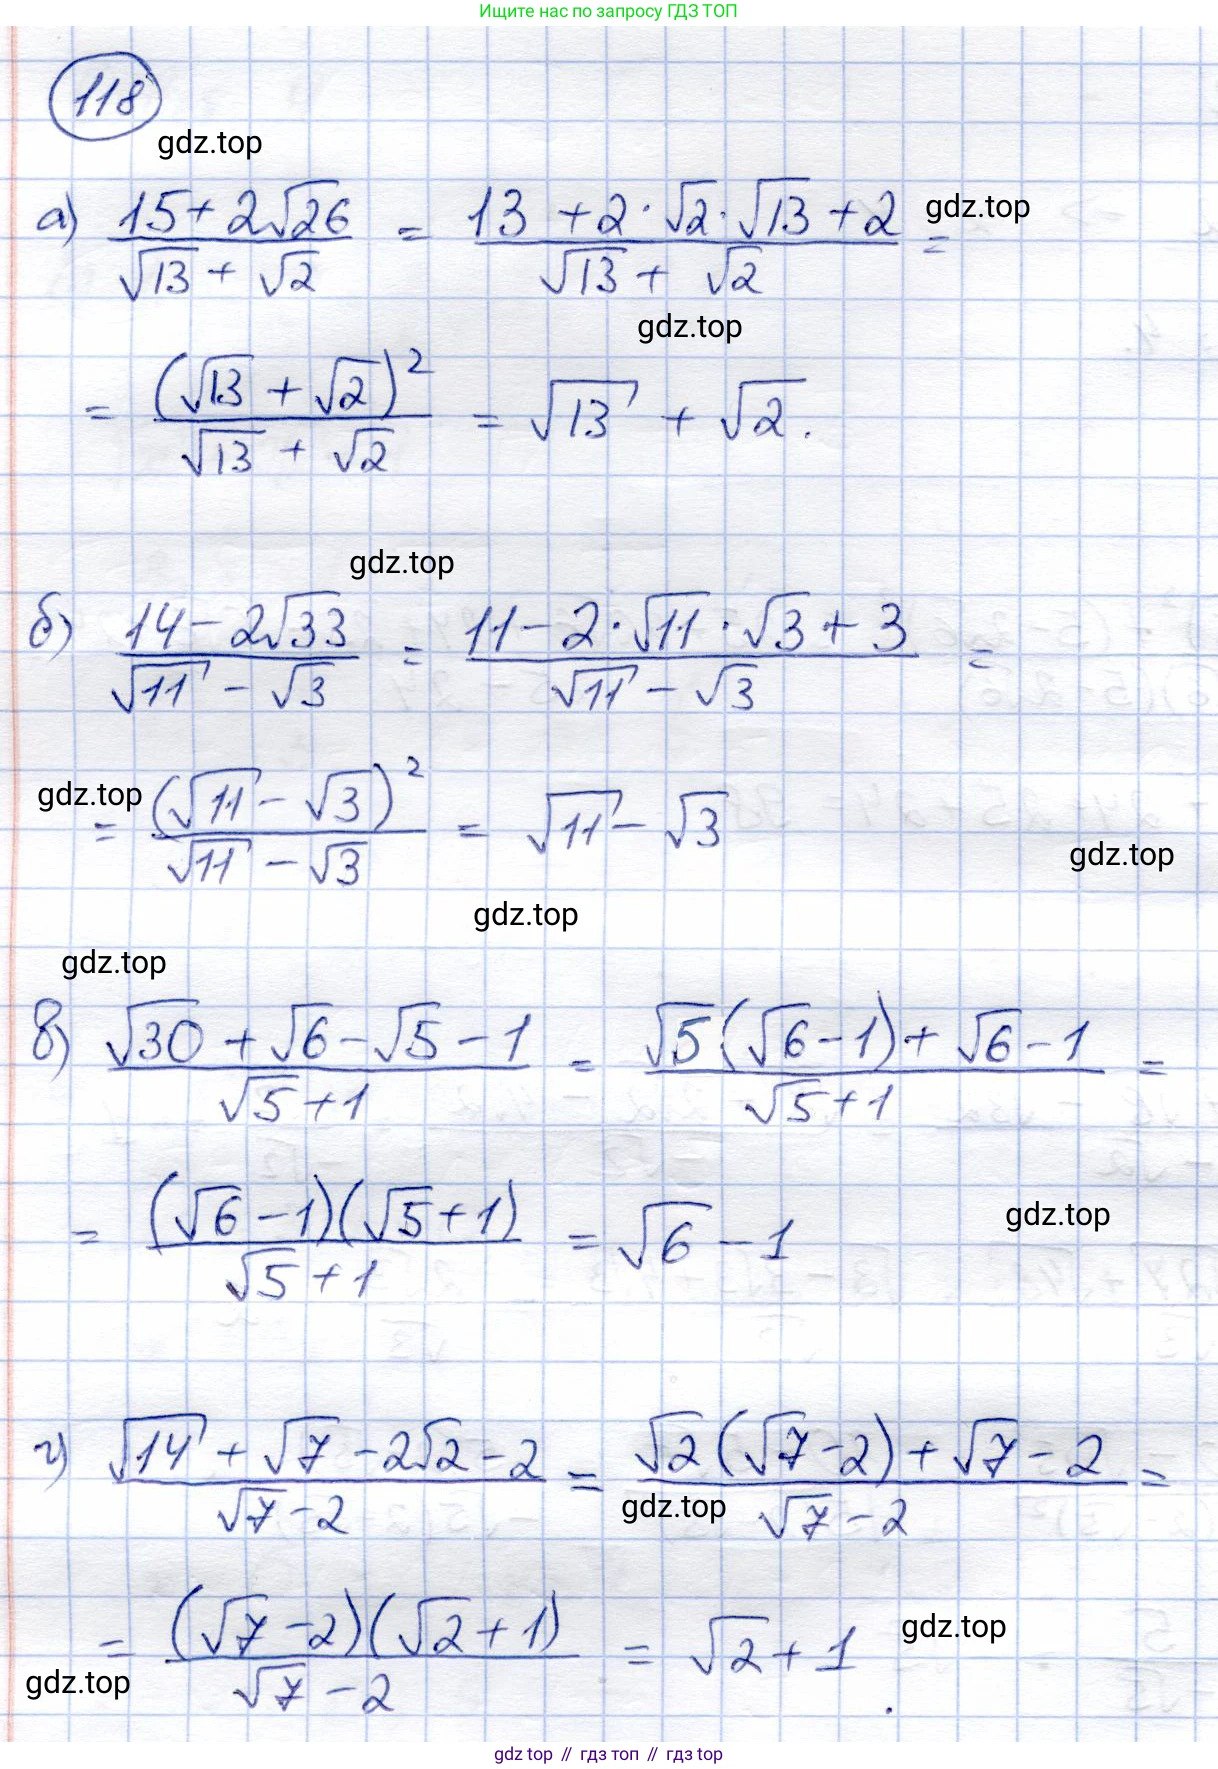 Ищите нас по запросу ГДЗ ТОП
118
gdz.top
а) (15+2√26)/(√13+√2) = (13+2·√2·√13+2)/(√13+√2) =
gdz.top
gdz.top
= (√13+√2)²/(√13+√2) = √13+√2.
gdz.top
б) (14-2√33)/(√11-√3) = (11-2·√11·√3+3)/(√11-√3) =
gdz.top
= (√11-√3)²/(√11-√3) = √11-√3
gdz.top
gdz.top
gdz.top
в) (√30+√6-√5-1)/(√5+1) = (√5(√6-1)+√6-1)/(√5+1) =
= (√6-1)(√5+1)/(√5+1) = √6-1
gdz.top
г) (√14+√7-2√2-2)/(√7-2) = (√2(√7-2)+√7-2)/(√7-2) =
gdz.top
= (√7-2)(√2+1)/(√7-2) = √2+1.
gdz.top
gdz.top
gdz top // гдз топ // gdz top